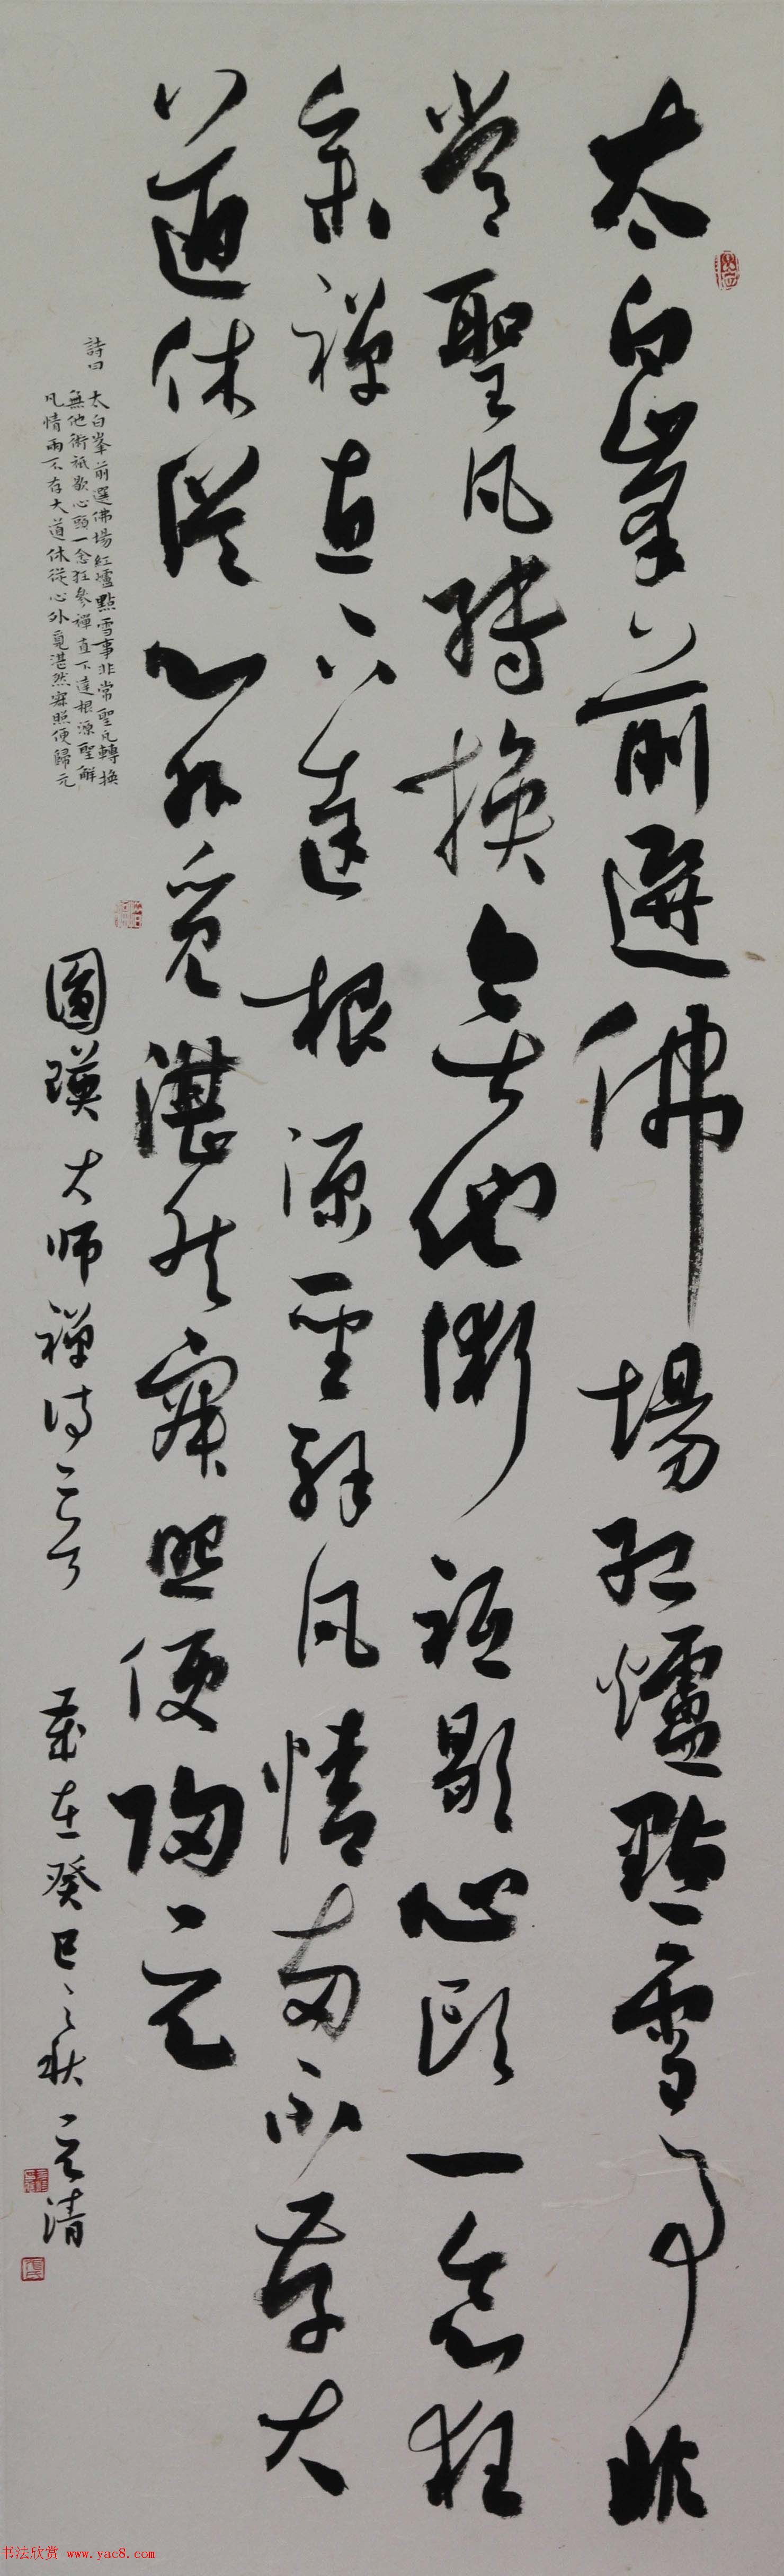 太白峯前選佛場紅爐點雪事非
常聖凡轉換無他術祇歇心頭一念狂
參禪直下達根源聖解凡情兩不存大
道休從心外覓湛然寂照便歸元
詩曰
太白峯前選佛場紅爐點雪事非常聖凡轉換
無他術祇歇心頭一念狂參禪直下達根源聖解
凡情兩不存大道休從心外覓湛然寂照便歸元
圓瑛大師禪詩二首 歲在癸巳之秋 元清
书法欣赏 www.yac8.com